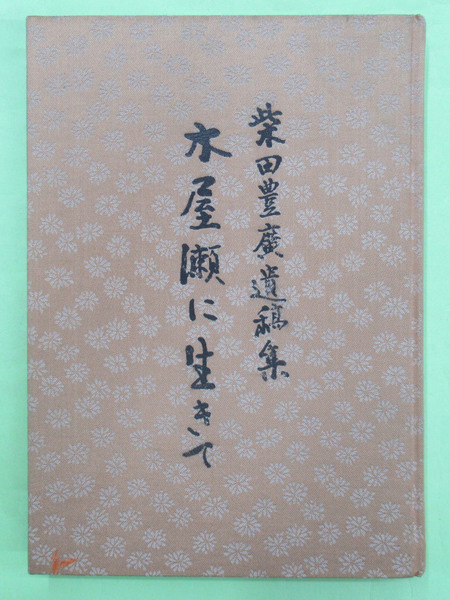 柴田豊廣遺稿集
木屋瀬に生きて